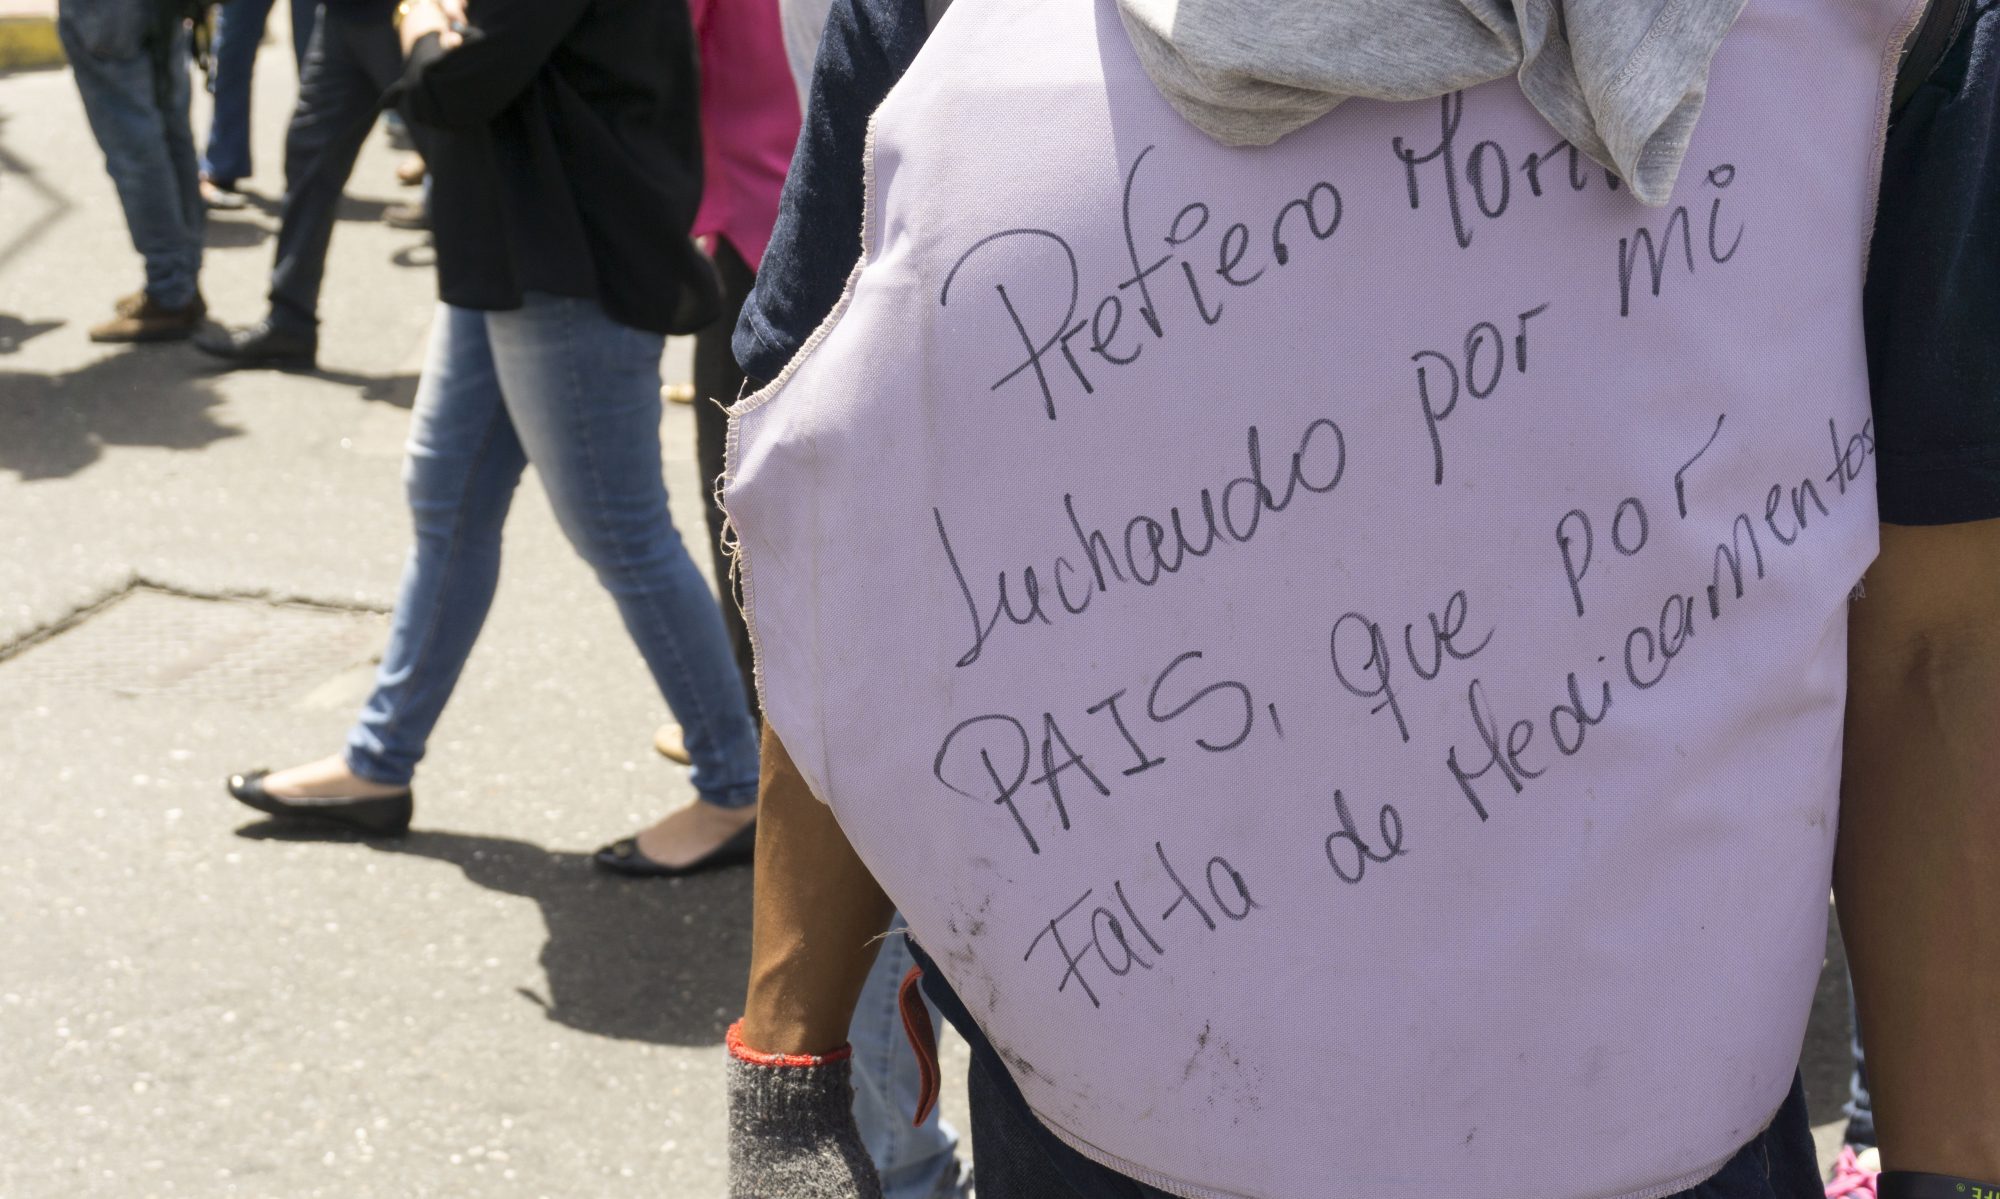 Prefiero Morir
Luchando por mi
PAIS, que por
Falta de Medicamentos